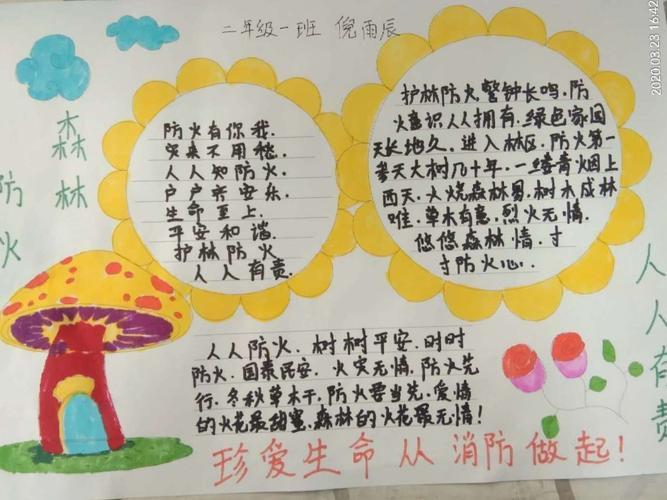 二年级一班 倪雨辰
2020.03.23 16:42
森林
防火
防火有你我.
来不用愁.
人人知防火.
户户齐安乐.
生命至上.
平安和谐.
护林防火
人人有责.
护林防火警钟长鸣.防
火意识人人拥有.绿色家园
天长地久.进入林区.防火第一
参天大树几十年.一缕青烟上
西天.火烧森林易.树木成林
唯.草木有意.烈火无情.
悠悠森林情.寸
寸防火心..
人人有责
人人防火.树树平安.时时
防火.国泰民安.火灾无情.防火先
行.冬秋草木干,防火要当先.爱情
的火花最甜蜜.森林的火花最无情!
珍爱生命从消防做起!